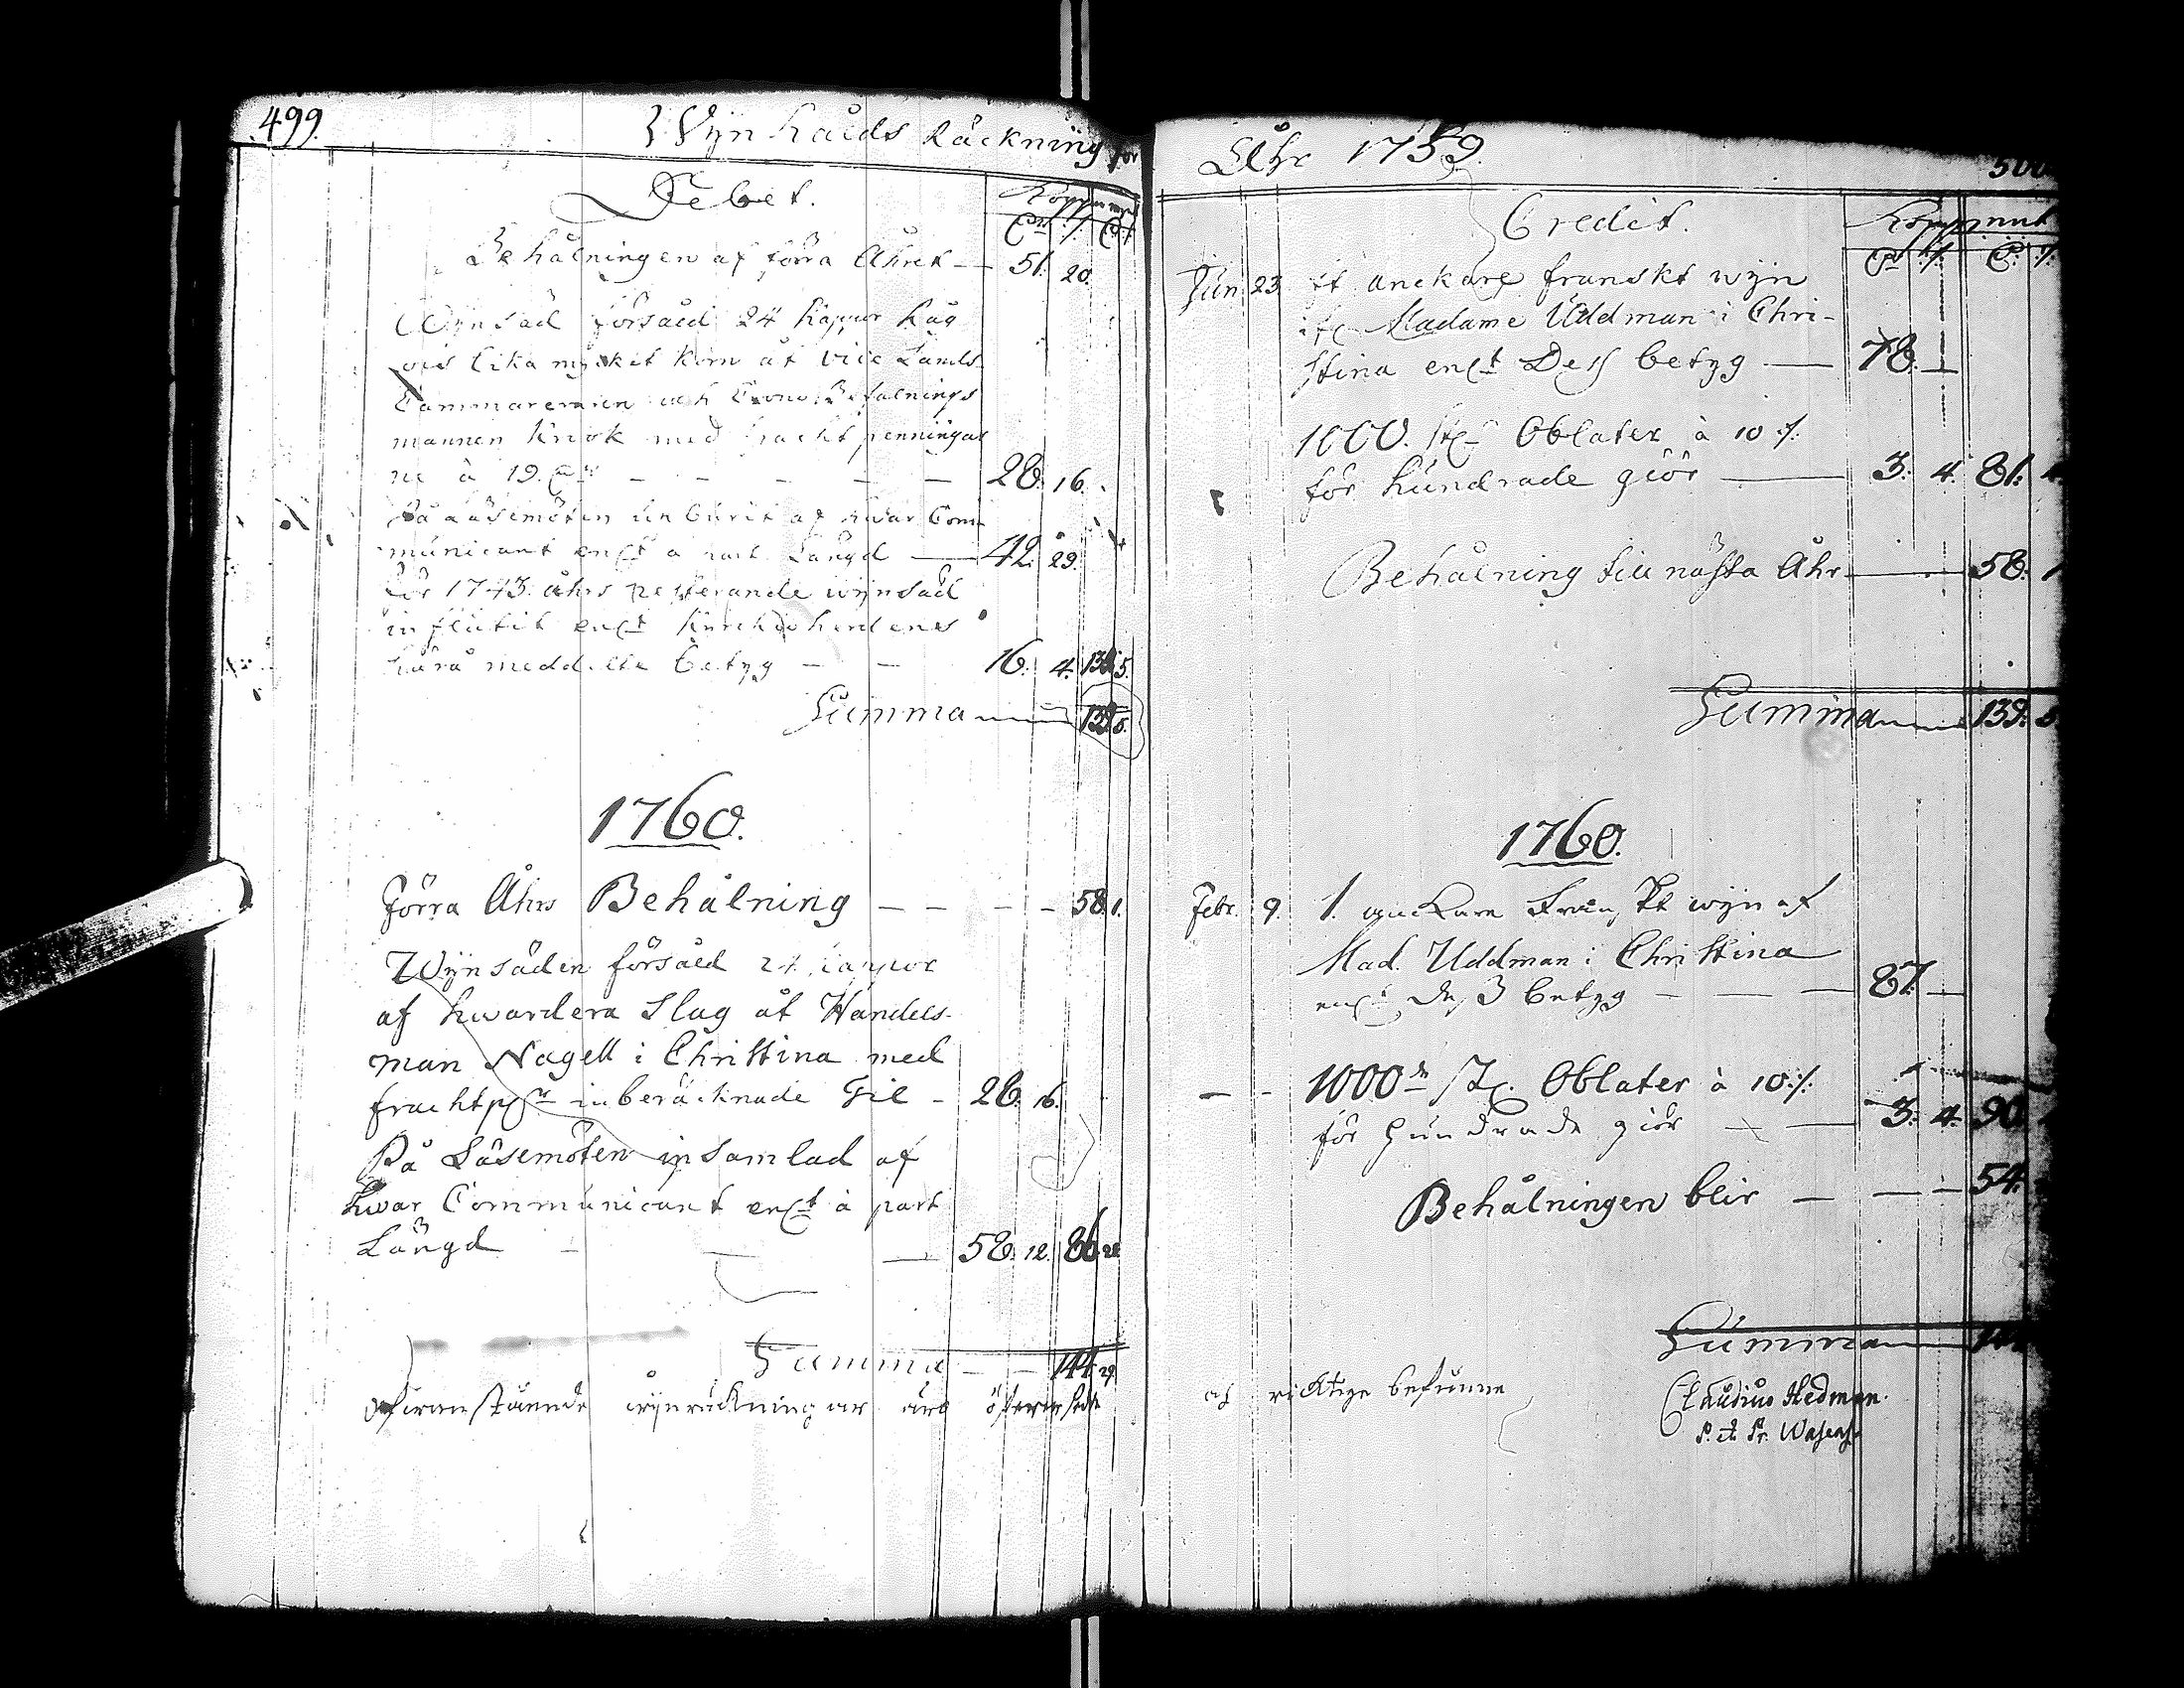 499.
Wijn håldz Räckning för
Debet.
Koppar mynt
Behålningen af förra Åhret — 51. 20.
Wijnsäd försåld 24 kappor Råg
och lika mycket Korn åt vice Lands
Cammereraren och Crono Befalnings
mannen Krook med fracht penningar
ne à 19. — — — — — 28. 16.
På Läsemöten inburit af hwar Com-
municant enl:t a part Längd — 42. 29.
för 1743 åhrs resterande wijnsäd
influtit enl:t Kyrckioherdens
härå meddelte betyg — — 16. 4. 139. 5.
Summa 139. 5.
1760.
förra Åhrs Behålning — — — — 58. 1.
Wijnsäden försåld 24 kappor
af hwardera slag åt Handels-
man Nagell i Christina med
frachtp:r inberäcknade til - 28. 16.
På Läsemöten insamlad af
hwar Communicant enl:t à part
Längd — — — 58. 12. 86. 28
Summa — — 144. 29
Ofwanstående wijnräckningar äro öfwersedde
Åhr 1759.
500
Credit.
Kopp mnt
Jun. 23. it anckare franskt wijn
af Madame Uddman i Chri-
stina enl:t Dess betyg — 78. —
1000. st:n Oblater à 10 :/:
för hundrade giör — 3. 4. 81. 4.
Behålning till nästa Åhr — 58. 1
Summa 139. 5
1760.
Febr. 9. 1. anckare Franskt wijn af
Mad. Uddman i Christina
enl:t des betyg — — — 87. —
— - 1000de st:n Oblater à 10 :/:
för hundrade giör — — 3. 4. 90.
Behålningen blir — — — 54.
Summa 144
och richtige befunne
Claudius Hedman.
P. et Pr. Wasens.